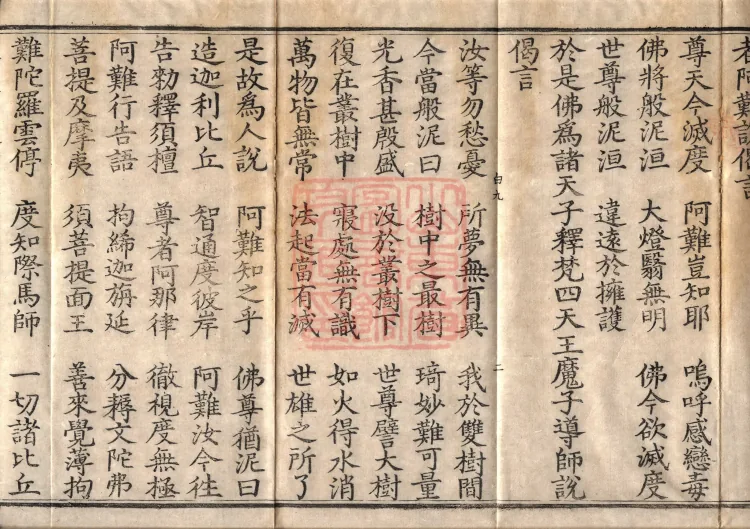 者阿難説偈言
尊天今滅度　阿難豈知耶　嗚呼感戀毒
佛將般泥洹　大燈翳無明　佛今欲滅度
世尊般泥洹　違遠於擁護
於是佛為諸天子釋梵四天王魔子導師說
偈言
汝等勿愁憂　所夢無有異　我於雙樹間
今當般泥曰　樹中之最樹　琦妙難可量
光香甚殷盛　没於叢樹下　世尊譬大樹
復在叢樹中　寢處無有識　如火得水消
萬物皆無常　法起當有滅　世雄之所了
是故為人說　阿難知之乎　佛尊猶泥曰
造迦利比丘　智通度彼岸　阿難汝今往
告勑釋須檀　尊者阿那律　徹視度無極
阿難行告語　拘絺迦旃延　分耨文陀弗
菩提及摩夷　須菩提面王　善來覺薄拘
難陀羅雲停　度知際馬師　一切諸比丘
白九
二